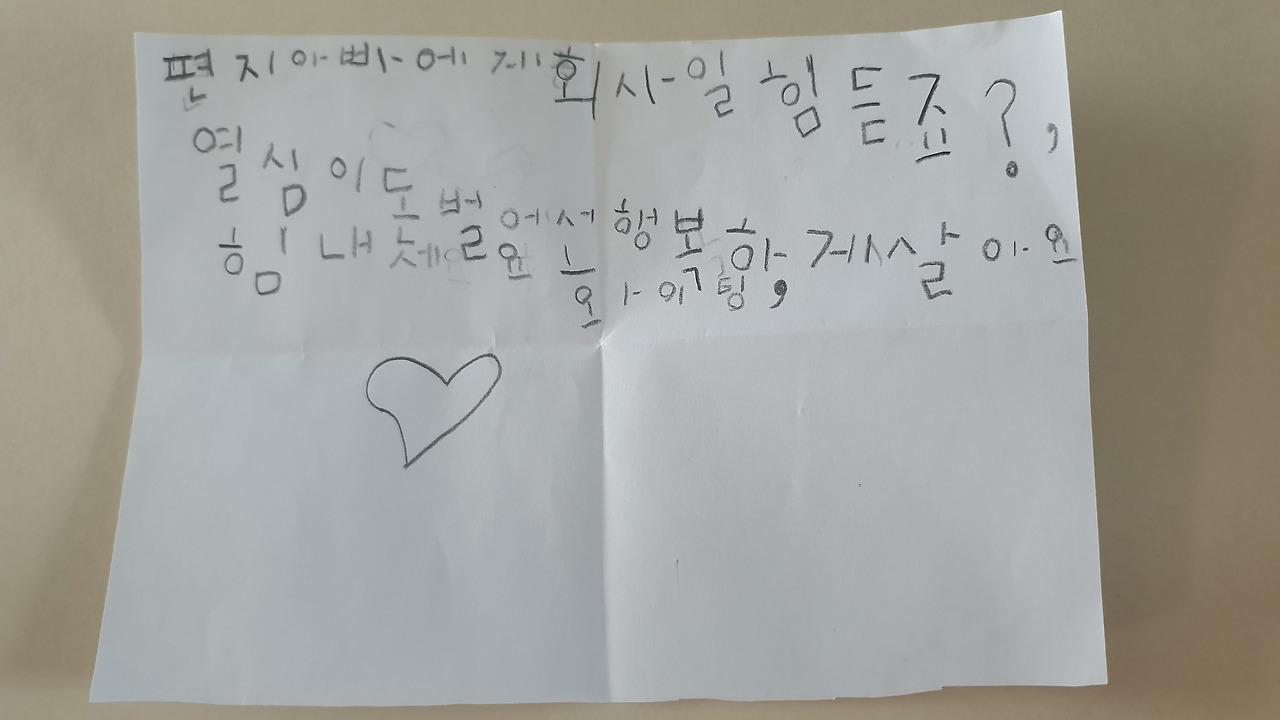 편지아빠에게회사일힘듣죠?,
열심이돈벌어서행복하게살아요
힘내세요화이팅,